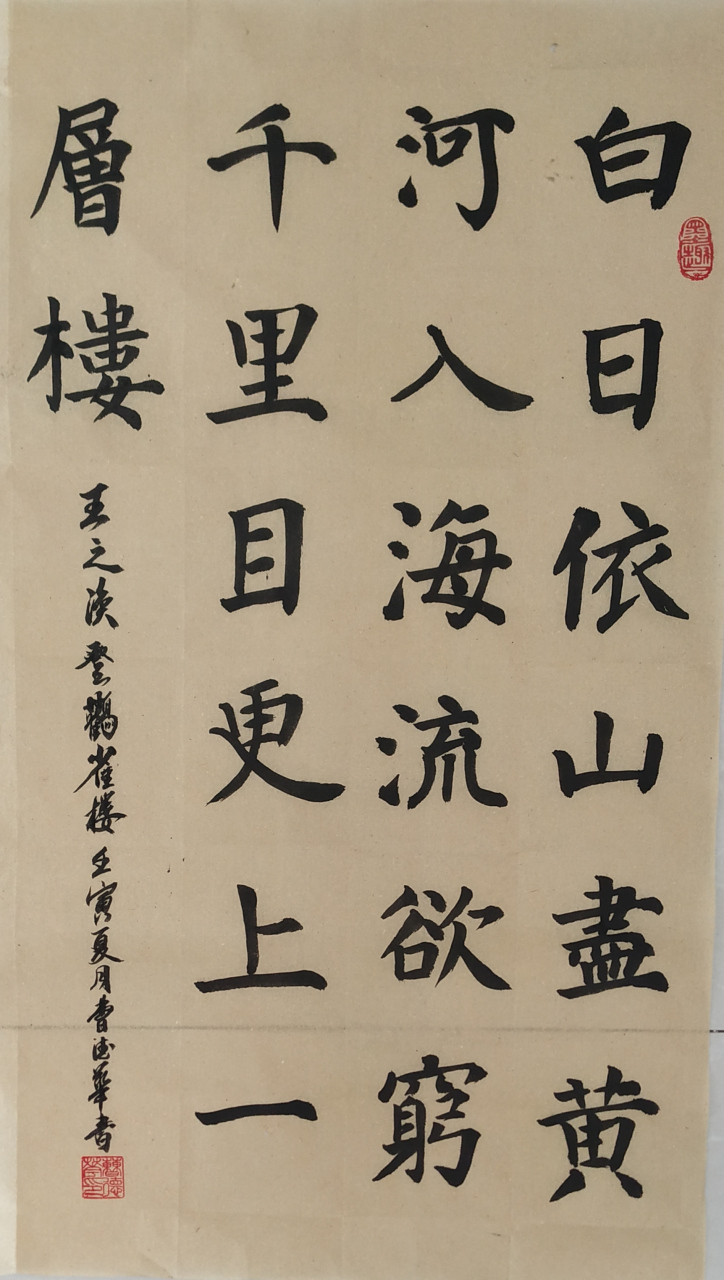 白日依山盡黄
河入海流欲窮
千里目更上一
層樓
王之渙登鸛雀樓壬寅夏月曹德華書